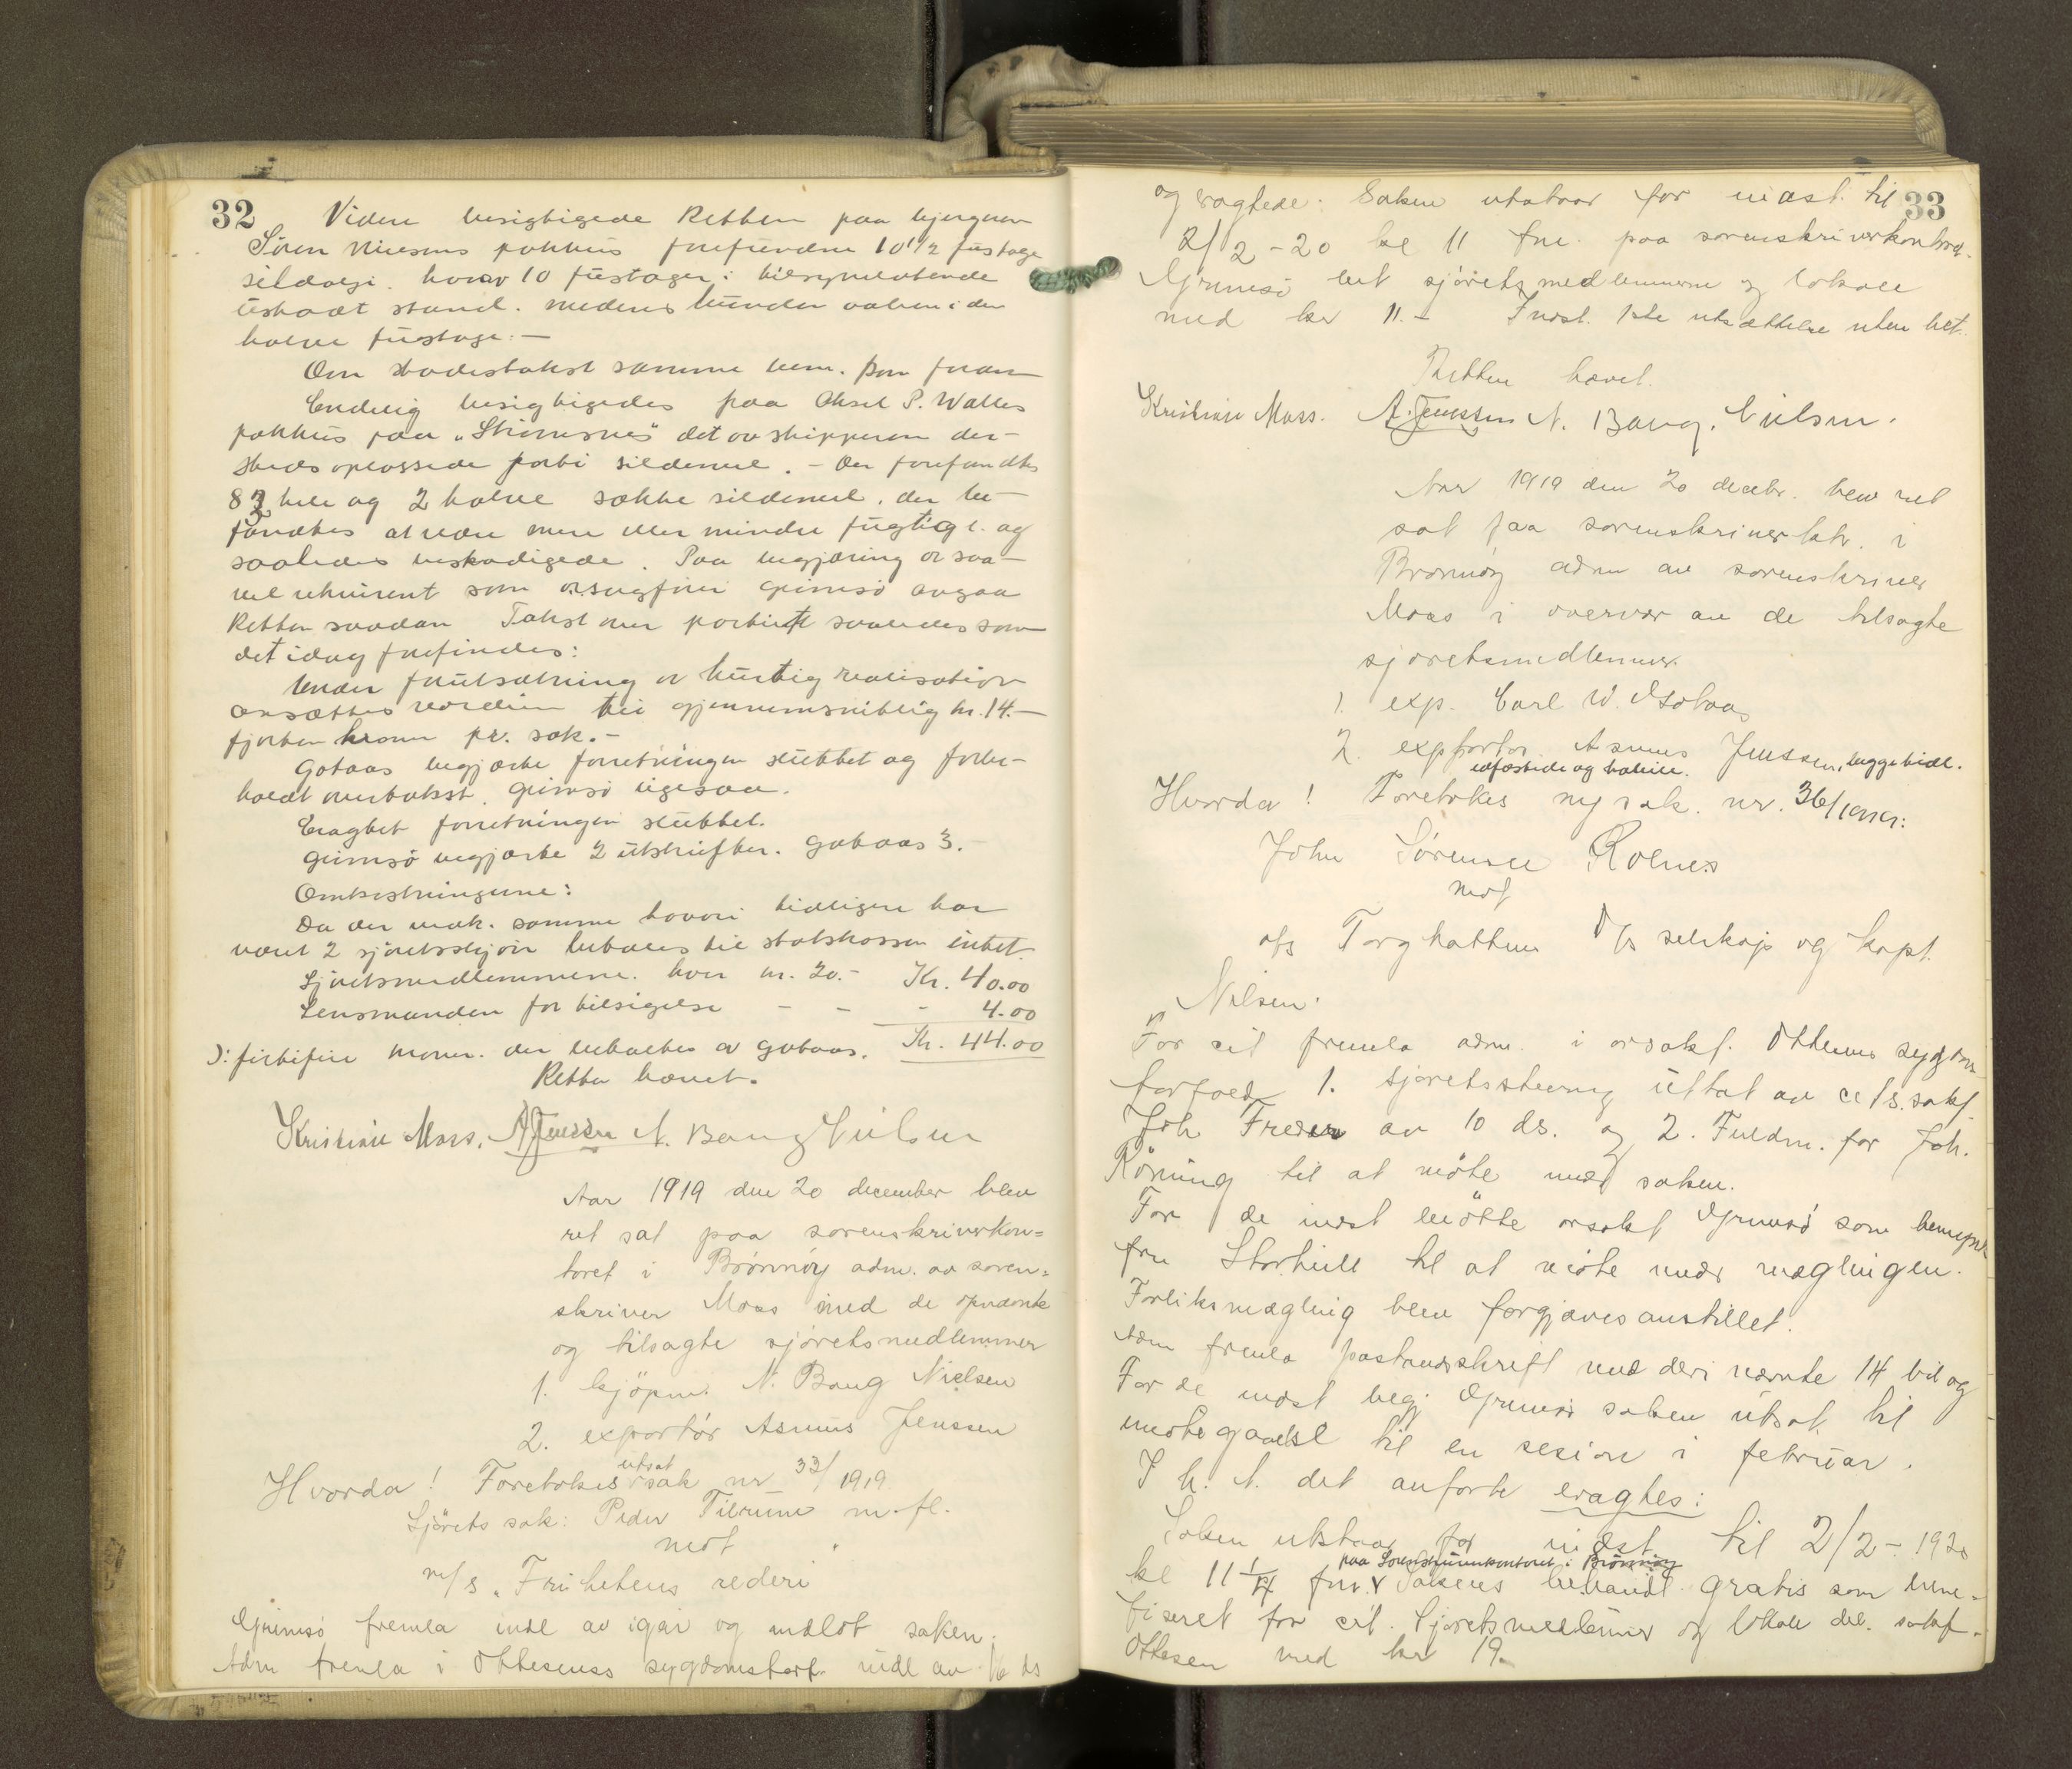 32
Videre besigtigede Retten paa kjøpman
Søren Nilsens pakhus forefundne 10 1/2 fustage
sildolje. hvorav 10 fustager i tilsynelatende
uskadt stand. medens bunden var aaben i den
halve fustage. —
Om skadestakst samme bem. som foran
Endelig besigtigedes paa Aksel P. Walles
pakhus paa „Skomsnes" det av skipperen der-
steds oplossede parti sildemel. - Der forefandtes
83 hele og 2 halve sække sildemel, der be-
fandtes at være mere eller mindre fugtige og
saaledes beskadigede. Paa begjæring av saa-
vel rekvirent som o.r.sagfører Grimsø avgaa
Retten saadan Takst over partiet saaledes som
det idag forefindes:
Under forutsætning av hurtig realisation
ansættes værdien til gjennemsnitlig kr. 14.—
fjorten kroner pr. sæk. -
Gotaas begjærte forretningen sluttet og forbe-
holdt overtakst. Grimsø ligesaa.
Eragtet forretningen sluttet.
Grimsø begjærte 2 utskrifter. Gotaas 3. -
Omkostningerne:
Da der vedk. samme havari tidligere har
været 2 sjøretsskjøn betales til statskassen intet.
Sjøretsmedlemmerne. hver kr. 20.- Kr. 40.00
Lensmanden for tilsigelse - - - 4.00
ɔ: firtifire kroner. der betaltes av Gotaas. Kr. 44.00
Retten hævet.
Kristian Moss. A Jenssen N. Bang Nielsen
Aar 1919 den 20 december blev
ret sat paa sorenskriverkon=
toret i Brønnøy adm. av soren=
skriver Moss med de opnævnte
og tilsagte sjøretsmedlemmer
1. kjøpm. N. Bang Nielsen
2. exportør Asmus Jenssen
Hvorda! Foretokes utsat sak nr 33/1919
Sjørets sak: Peder Tilrum m. fl.
mot
m/s „Frihetens rederi
Grimsø fremla indl av igår og indlot saken.
Adm fremla i Ottesens sygdomsforf. indl av 16 ds
33
og eragtede: Saken utstaar for indst. til
2/2 - 20 kl 11 fm. paa sorenskriverkontoret.
Grimsø bet sjøretsmedlemmerne og lokale
med kr 11. - Indst. 1ste utsættelse uten bet.
Retten hævet.
Kristian Moss. A. Jenssen N. Bang. Nielsen.
Aar 1919 den 20 decbr. blev ret
sat paa sorenskriverktr. i
Brønnøy adm av sorenskriver
Moss i overvær av de tilsagte
sjøretsmedlemmer.
1. exp. Carl W. Gotaas
2. exportør Asmus Jenssen, begge hidl.
edfæstede og habile.
Hvorda! Foretokes ny sak. nr. 36/1919:
John Sørensen Rolnes
mot
a/s Torghattens D/s selskap og kapt.
Nilsen.
For cit fremla adm. i orsakf. Ottesens sygdoms
forfald 1. sjøretsstevning uttat av cits. sakf.
Joh Fredr av 10 ds. og 2. Fuldm. for Joh.
Röning til at møte med saken.
For de indst møtte orsakf Grimsø som bemynd
fru Storhull til at møte under mæglingen.
Forliksmægling blev forgjæves anstillet.
Adm fremla paastandsskrift med deri nævnte 14 bilag
For de indst begj Grimsø saken utsat til
imøtegaaelse til en sesion i februar.
I h. t. det anførte eragtes:
Saken utstaar for indst. til 2/2 - 1920
paa Sorenskriverkontoret i Brønnøy
kl 11 1/4 fm. Sakens behandl. gratis som bene-
fiseret for cit. Sjøretsmedlemmer og lokale bet. sakf.
Ottesen med kr 19.